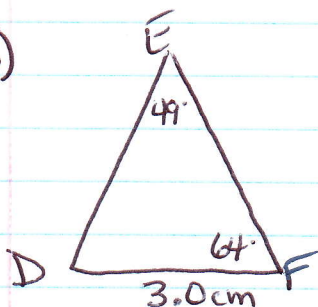 )
E
49°
64°
D
F
3.0cm